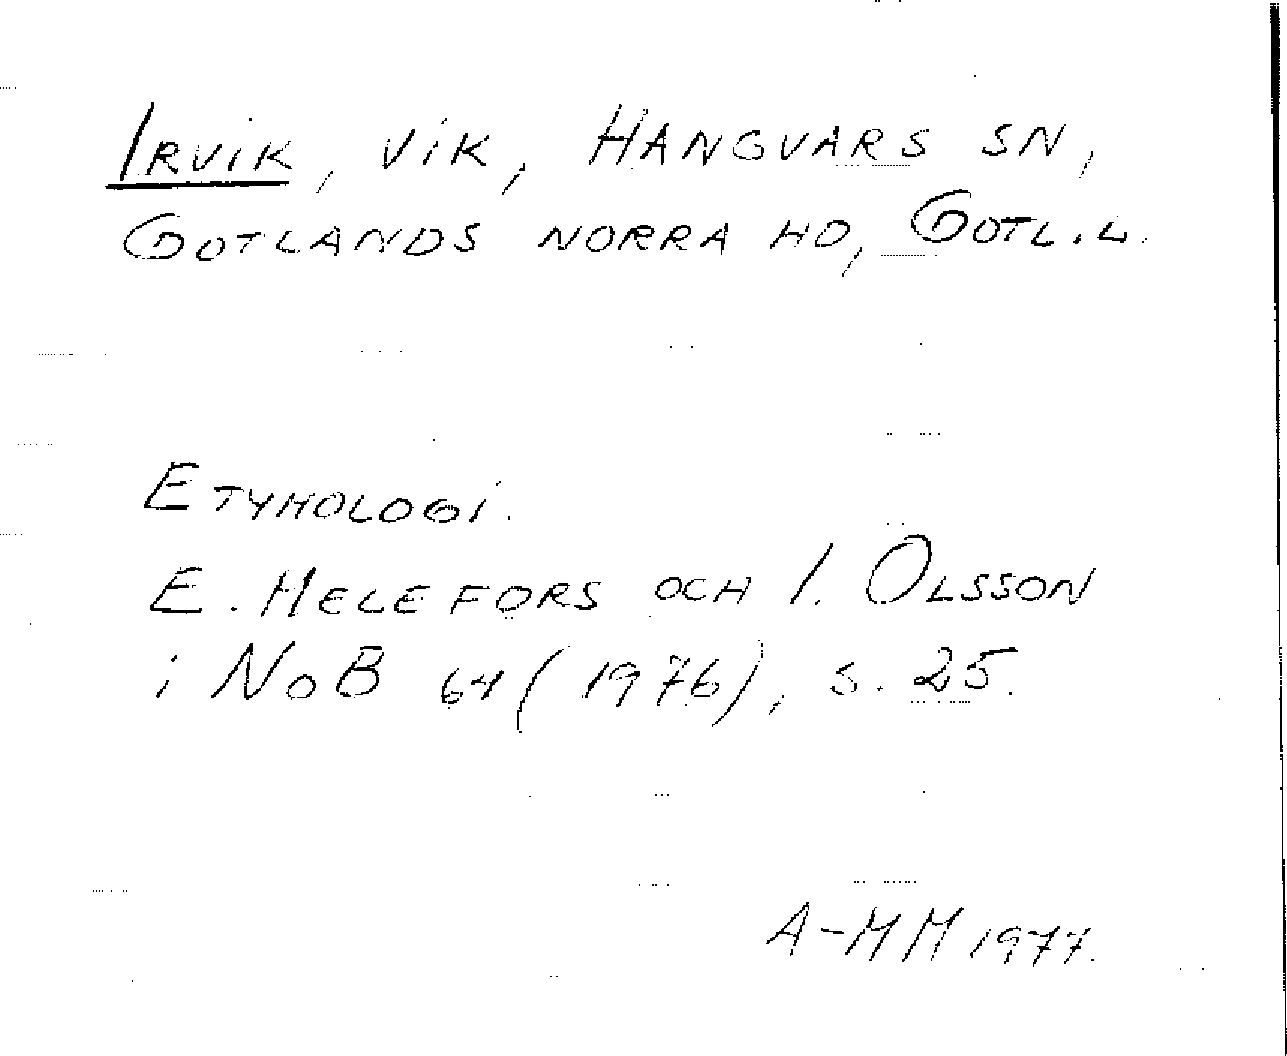 IRVIK, VIK, HANGVARS SN,
GOTLANDS NORRA HD, GOTL.L.
ETYMOLOGI.
E. MELEFORS OCH I. OLSSON
i NoB 64 (1976), s. 25.
A-MM 1977.